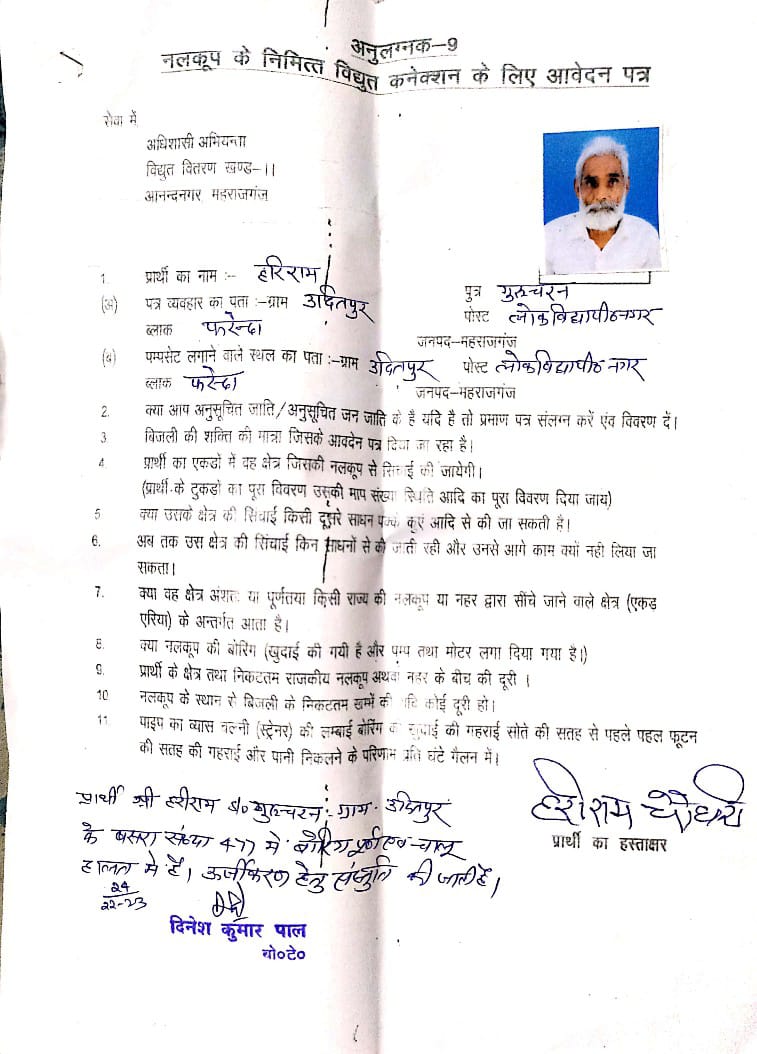 अनुलग्नक–9
नलकूप के निमित्त विद्युत कनेक्शन के लिए आवेदन पत्र
सेवा में
अधिशासी अभियन्ता
विद्युत वितरण खण्ड–।।
आनन्दनगर महराजगंज
1. प्रार्थी का नाम :– हरिराम पुत्र गुरूचरन
(अ) पत्र व्यवहार का पता :–ग्राम उदितपुर पोस्ट लोकविद्यापीठनगर
ब्लाक फरेन्दा जनपद–महराजगंज
(ब) पम्पसेट लगाने वाले स्थल का पता :–ग्राम उदितपुर पोस्ट लोकविद्यापीठ नगर
ब्लाक फरेन्दा जनपद–महराजगंज
2. क्या आप अनुसूचित जाति/अनुसूचित जन जाति के है यदि है तो प्रमाण पत्र संलग्न करें एंव विवरण दें।
3 बिजली की शक्ति की मात्रा जिसके आवदेन पत्र दिया जा रहा है।
4. प्रार्थी का एकडो में वह क्षेत्र जिसकी नलकूप से सिचाई की जायेगी।
(प्रार्थी के टुकडो का पूरा विवरण उसकी माप संख्या स्थिति आदि का पूरा विवरण दिया जाय)
5 क्या उसके क्षेत्र की सिचाई किसी दूसरे साधन पक्के कुएं आदि से की जा सकती है।
6. अब तक उस क्षेत्र की सिंचाई किन साधनों से की जाती रही और उनसे आगे काम क्यों नही लिया जा
सकता।
7. क्या वह क्षेत्र अंशतः या पूर्णतया किसी राज्य की नलकूप या नहर द्वारा सींचे जाने वाले क्षेत्र (एकड
एरिया) के अन्तर्गत आता है।
8. क्या नलकूप की बोरिंग (खुदाई की गयी है और पम्प तथा मोटर लगा दिया गया है।)
9. प्रार्थी के क्षेत्र तथा निकटतम राजकीय नलकूप अथवा नहर के बीच की दूरी ।
10 नलकूप के स्थान से बिजली के निकटतम खम्भें की यदि कोई दूरी हो।
11 पाइप का व्यास नल्नी (स्ट्रेनर) की लम्बाई बोरिंग की खुदाई की गहराई सोते की सतह से पहले पहल फूटन
की सतह की गहराई और पानी निकलने के परिणाम प्रति घंटे गैलन में।
हरीराम चौधरी
प्रार्थी का हस्ताक्षर
प्रार्थी श्री हरीराम s/o गुरूचरन ग्राम उदितपुर
के खसरा संख्या 477 मे बोरिंग पूर्ण एवं चालू
हालत मे है। ऊर्जीकरण हेतु संस्तुति की जाती है।
24
22-23
दिनेश कुमार पाल
बो०टे०